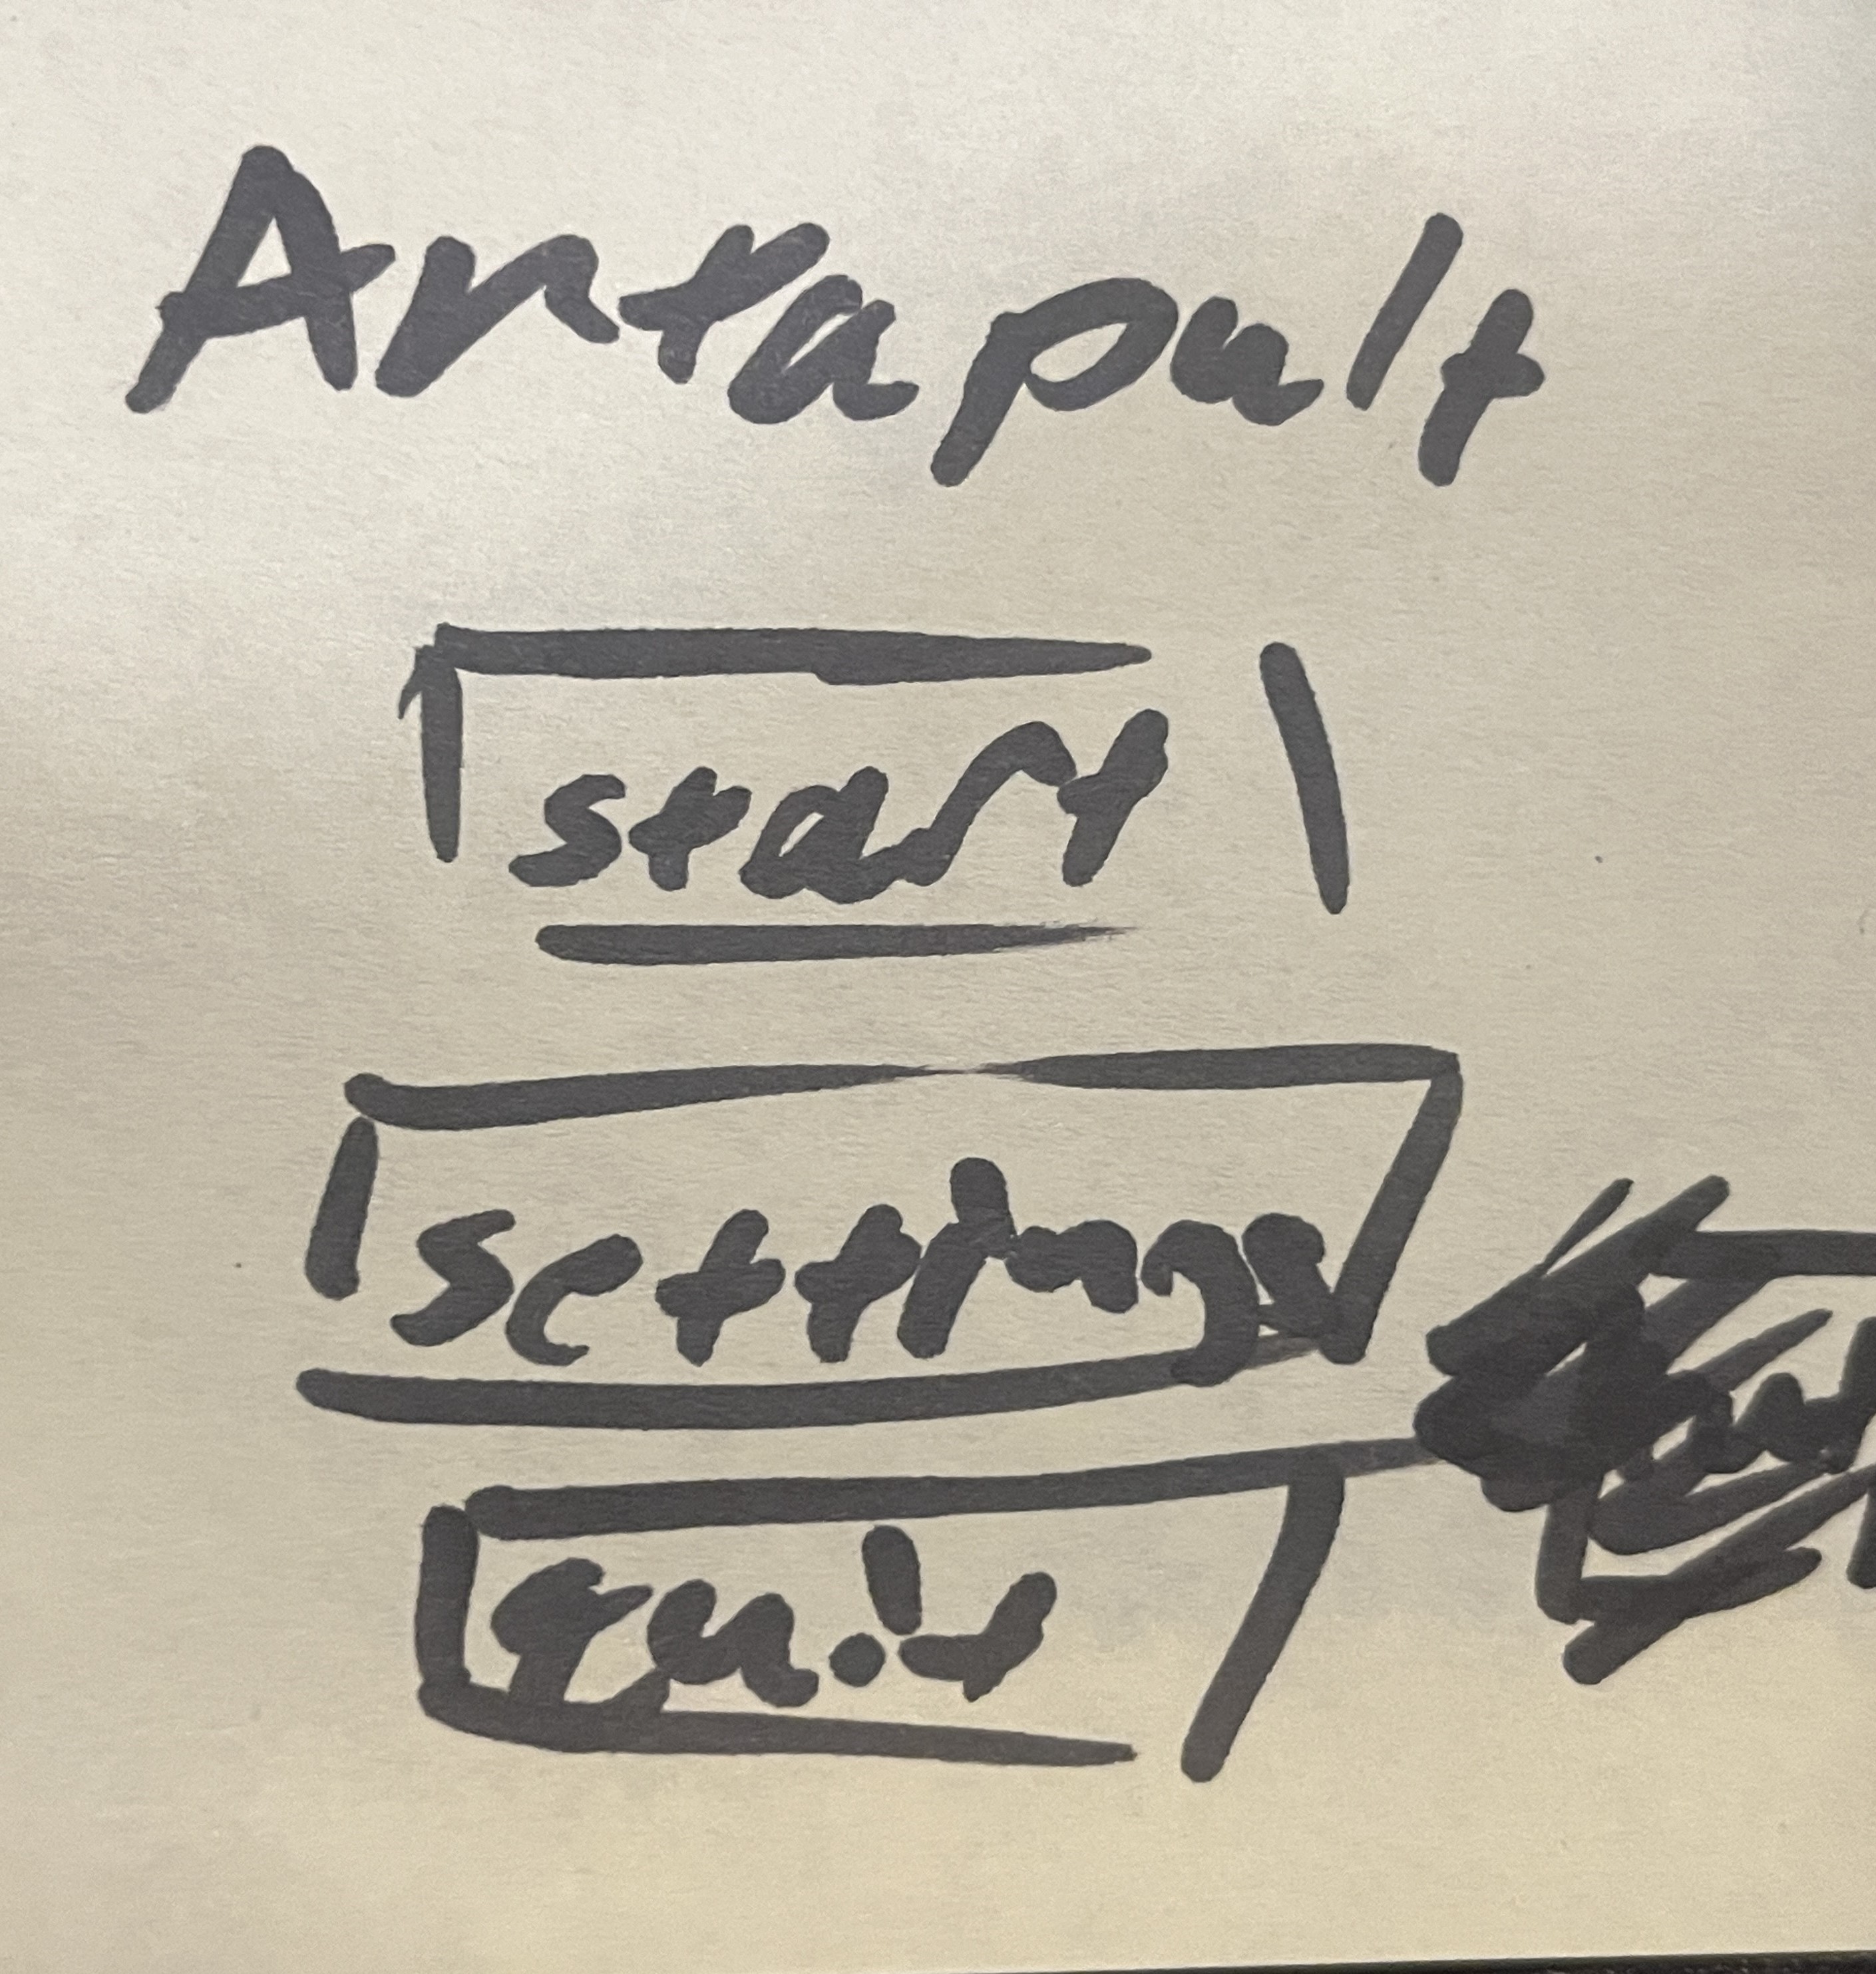 Antapult
start
settings
quit